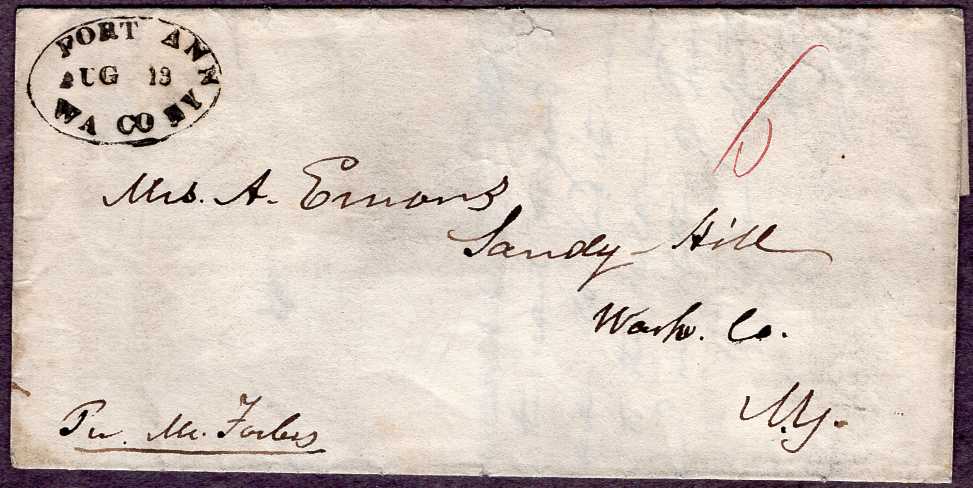 FORT ANN
AUG 13
WA CO NY
6
Mrs. A. Emons
Sandy-Hill
Wash. Co.
N.Y.
Per. Mr. Forbes